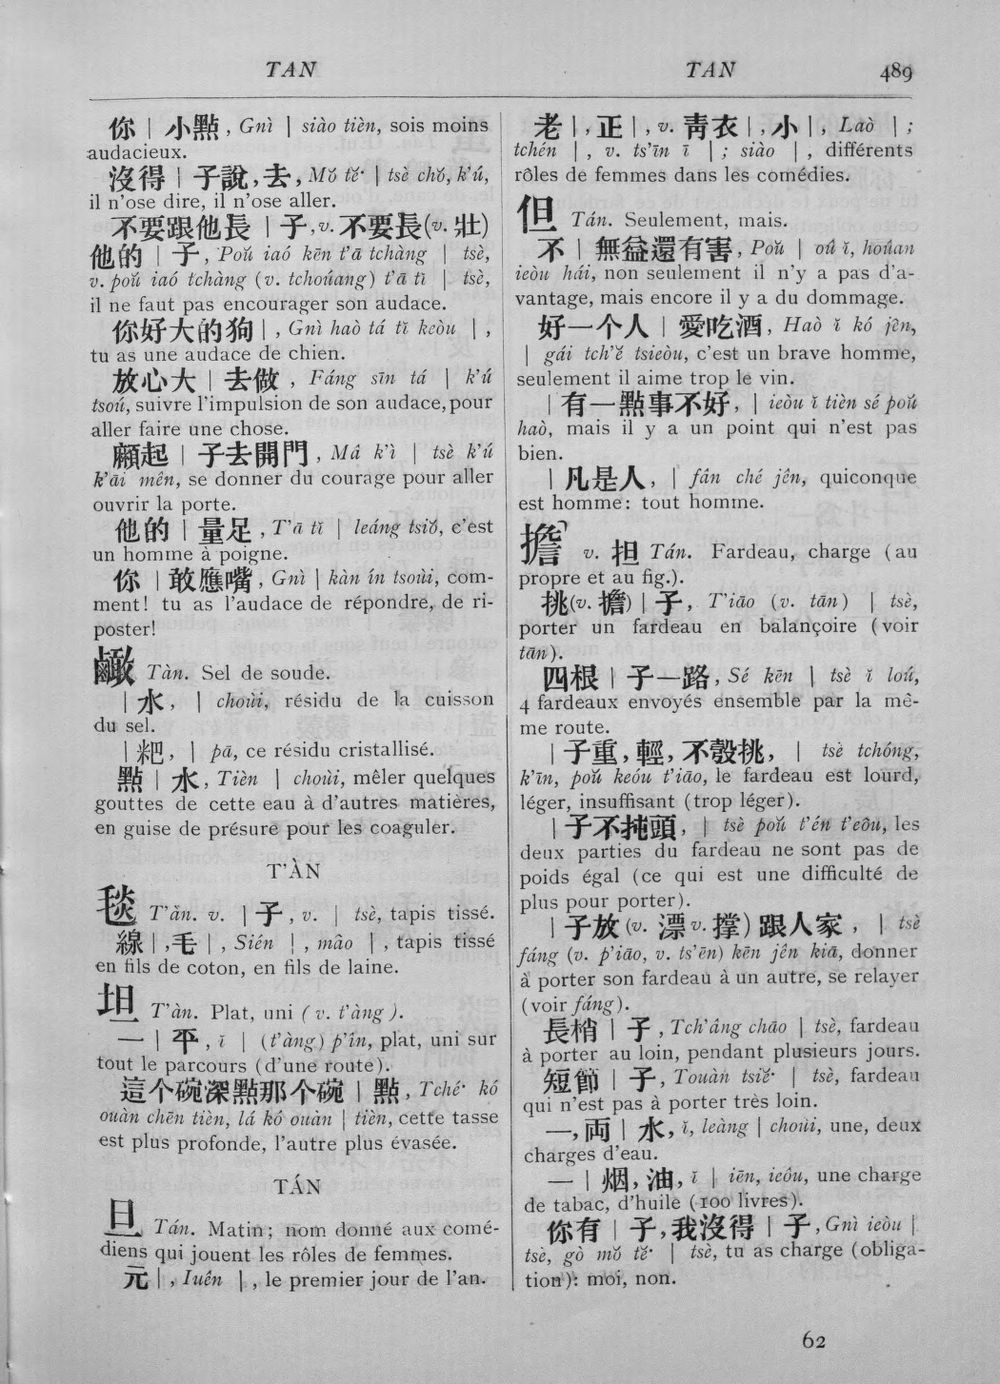 TAN
TAN 489
你 | 小點, Gnì | siào tièn, sois moins
audacieux.
沒得 | 子說, 去, Mŏ tĕ· | tsè chŏ, k'ú,
il n'ose dire, il n'ose aller.
不要跟他長 | 子, v. 不要長 (v. 壯)
他的 | 子, Poŭ iaó kēn t'ā tchàng | tsè,
v. poŭ iaó tchàng (v. tchoúang) t'ā tĭ | tsè,
il ne faut pas encourager son audace.
你好大的狗 |, Gnì haò tá tĭ keòu | ,
tu as une audace de chien.
放心大 | 去做, Fáng sīn tá | k'ú
tsoú, suivre l'impulsion de son audace, pour
aller faire une chose.
起 | 子去開門, Mâ k'ì | tsè k'ú
k'āi mên, se donner du courage pour aller
ouvrir la porte.
他的 | 量足, T'ā tĭ | leáng tsiŏ, c'est
un homme à poigne.
你 | 敢應嘴, Gnì | kàn ín tsoùi, com-
ment! tu as l'audace de répondre, de ri-
poster!
Tàn. Sel de soude.
| 水, | choùi, résidu de la cuisson
du sel.
| 粑, | pā, ce résidu cristallisé.
點 | 水, Tièn | choùi, mêler quelques
gouttes de cette eau à d'autres matières,
en guise de présure pour les coaguler.
T'ÀN
毯 T'àn. v. | 子, v. | tsè, tapis tissé.
線 |, 毛 |, Sién | , mâo | , tapis tissé
en fils de coton, en fils de laine.
坦 T'àn. Plat, uni (v. t'àng).
一 | 平, ĭ | (t'àng) p'în, plat, uni sur
tout le parcours (d'une route).
這个碗深點那个碗 | 點, Tché· kó
ouàn chēn tièn, lá kó ouàn | tièn, cette tasse
est plus profonde, l'autre plus évasée.
TÁN
旦 Tán. Matin; nom donné aux comé-
diens qui jouent les rôles de femmes.
元 |, Iuên | , le premier jour de l'an.
老 |, 正 |, v. 靑衣 |, 小 |, Laò | ;
tchén | , v. ts'īn ī | ; siào | , différents
rôles de femmes dans les comédies.
但 Tán. Seulement, mais.
不 | 無益還有害, Poŭ | oû ĭ, hoûan
ieòu hái, non seulement il n'y a pas d'a-
vantage, mais encore il y a du dommage.
好一个人 | 愛吃酒, Haò ĭ kó jên,
| gái tch'ĕ tsieòu, c'est un brave homme,
seulement il aime trop le vin.
| 有一點事不好, | ieòu ĭ tièn sé poŭ
haò, mais il y a un point qui n'est pas
bien.
| 凡是人, | fân ché jên, quiconque
est homme: tout homme.
擔 v. 担 Tán. Fardeau, charge (au
propre et au fig.).
挑 (v. 擔) | 子, T'iāo (v. tān) | tsè,
porter un fardeau en balançoire (voir
tān).
四根 | 子一路, Sé kēn | tsè ĭ loú,
4 fardeaux envoyés ensemble par la mê-
me route.
| 子重, 輕, 不彀挑, | tsè tchóng,
k'īn, poŭ keóu t'iāo, le fardeau est lourd,
léger, insuffisant (trop léger).
| 子不扽頭, | tsè poŭ t'én t'eôu, les
deux parties du fardeau ne sont pas de
poids égal (ce qui est une difficulté de
plus pour porter).
| 子放 (v. 漂 v. 撑) 跟人家, | tsè
fáng (v. p'iāo, v. ts'ēn) kēn jên kiā, donner
à porter son fardeau à un autre, se relayer
(voir fáng).
長梢 | 子, Tch'âng chāo | tsè, fardeau
à porter au loin, pendant plusieurs jours.
短節 | 子, Touàn tsiĕ· | tsè, fardeau
qui n'est pas à porter très loin.
一, 両 | 水, ĭ, leàng | choùi, une, deux
charges d'eau.
一 | 烟, 油, ĭ | iēn, ieôu, une charge
de tabac, d'huile (100 livres).
你有 | 子, 我沒得 | 子, Gnì ieòu |
tsè, gò mŏ tĕ· | tsè, tu as charge (obliga-
tion): moi, non.
62